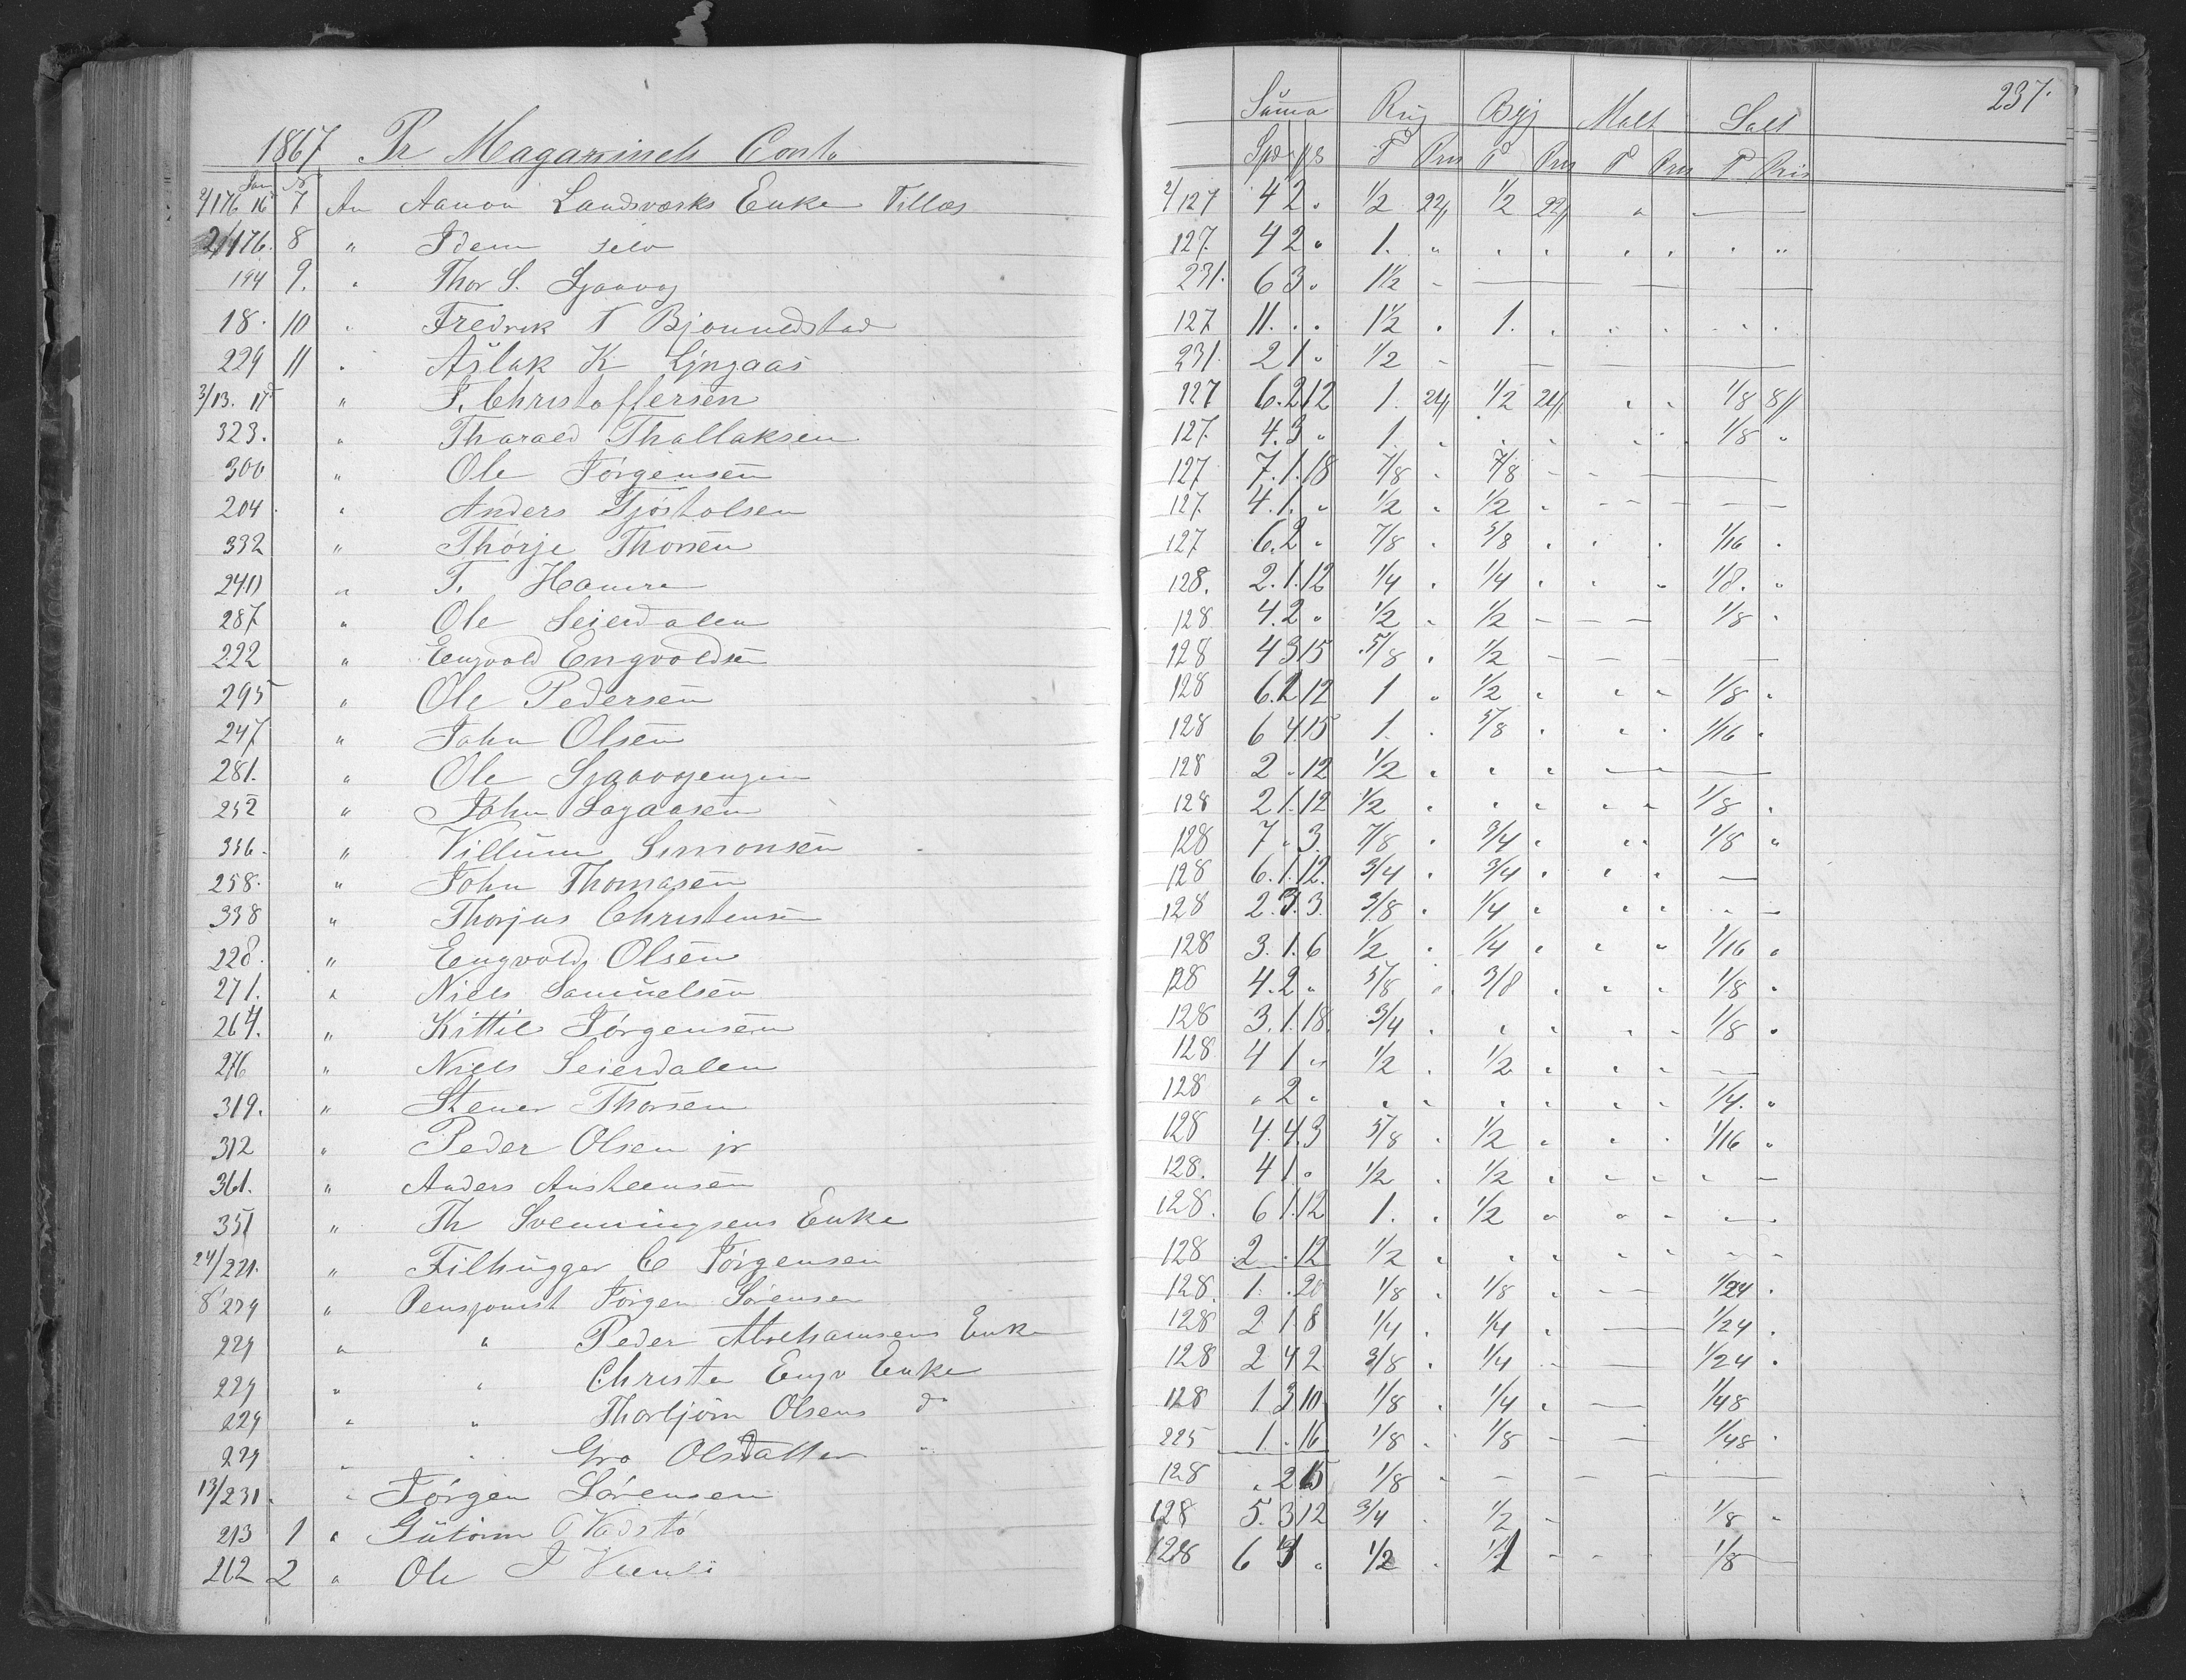 237.
1867 Pr Magazinets Conto Suma Rug Byg Malt Salt
Jan No Spd ß T Pris T Pris T Pris T Pris
2/176 16 7 An Aanon Landsværks Enke Tillæg 2/127 4 2 „ 1/2 22/ 1/2 22/ „ —
2/176. 8 „ Idem selv 127. 4 2 „ 1. „ „ „ „ „ „ „
194 9. „ Thor S. 231. 6 3 „ 1 1/2 —
18. 10 „ Fredrik T Bjonnedstad 127 11. „ „ 1 1/2 „ 1. „ „ „ „ „
229 11 „ Aslak K Lyngaas 231. 2 1 „ 1/2 —
3/13. 17 „ T. Christoffersen 127 6. 2 12 1. 24/ 1/2 24/ „ „ 1/8 8/
323. „ Tharald Thallaksen 127. 4. 3 „ 1. „ „ „ „ „ 1/8 „
300 „ Ole Jørgensen 127 7. 1. 18 7/8 „ 7/8 —
204 „ Anders Gjøstolsen 127. 4. 1. „ 1/2 „ 1/2 „ —
332 „ Thorje Thorsen 127 6. 2 „ 7/8 „ 5/8 „ „ „ 1/16 „
240 „ T. Hamre 128. 2. 1. 12 1/4 „ 1/4 „ „ „ 1/8. „
287 „ Ole Seierdalen 128 4. 2 „ 1/2 „ 1/2 — 1/8 „
222 „ Engvold Engvoldsen 128 4 3 15 5/8 „ 1/2 —
295 „ Ole Pedersen 128 6. 2 12 1 „ 1/2 „ „ „ 1/8 „
247 „ John Olsen 128 6 4. 15 1. „ 5/8 „ „ „ 1/16 „
281. „ Ole 128 2 „ 12 1/2 „ „ „ —
252 „ John Lagaasen 128 2 1. 12 1/2 „ „ „ „ „ 1/8 „
336. „ Villum Simonsen 128 7 „ 3. 7/8 „ 3/4 „ „ „ 1/8 „
258. „ John Thomasen 128 6. 1. 12. 3/4 „ 3/4 „ „ „ —
338 „ Thorjus Christensen 128 2. 3. 3. 3/8 „ 1/4 „ „ „ „ —
228. „ Engvold Olsen 128 3. 1. 6 1/2 „ 1/4 „ „ „ 1/16 „
271. „ Niels Samuelsen 128 4. 2 „ 5/8 „ 3/8 „ „ „ 1/8 „
264. „ Kittil Jørgensen 128 3. 1. 18 3/4 „ „ „ „ „ 1/8 „
276 „ Niels Seierdalen 128 4 1 „ 1/2 „ 1/2 „ „ „ —
319. „ Stener Thorsen 128 „ 2 „ „ „ „ „ „ „ 1/4. „
312 „ Peder Olsen jr 128 4. 4. 3 5/8 „ 1/2 „ „ „ 1/16 „
361. „ Anders Anstensen 128. 4 1. „ 1/2 „ 1/2 „ „ „ „ —
351 „ Th Svenningsens Enke 128. 6 1. 12 1. „ 1/2 „ „ „ „ „
24/221. „ Filhugger C Jørgensen 128 2 „ 12 1/2 „ „ „ „ „ „ „
8/229 „ Pensjonist Jørgen Sørensen 128. 1. „ 20 1/8 „ 1/8 „ — 1/24 „
229 „ „ Peder Abrehamsens Enke 128 2 1. 8 1/4 „ 1/4 „ — 1/24 „
229 „ „ Christe Engv Enke 128 2 4 2 3/8 „ 1/4 — 1/24 „
229 „ „ Thorbjørn Olsens do 128 1 3 10 1/8 „ 1/4 „ — 1/48
229 „ „ Gro Olsdatter „ 225 1. „ 16 1/8 „ 1/8 — 1/48 „
13/231. „ Jørgen Sørensen 128 „ 2 15 1/8 „ —
213 1 „ Gutorm 128 5. 3 12 3/4 „ 1/2 — 1/8 „
262 2 „ Ole J 128 6 „ 1/2 „ — 1/8